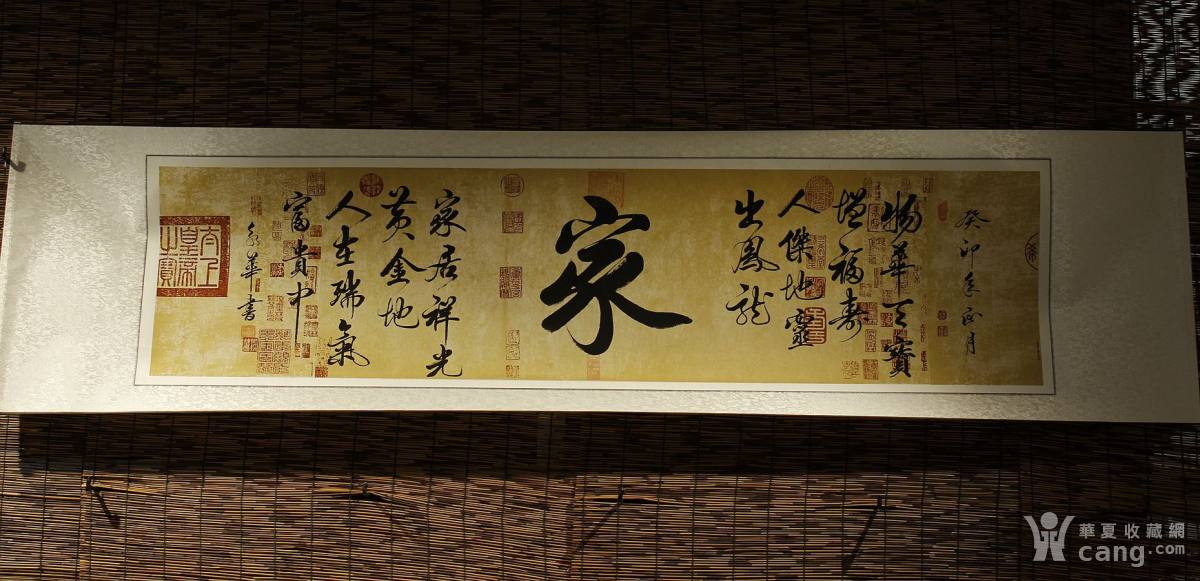 癸卯年正月
物華天寶
增福壽
人傑地靈
出鳳龍
家
家居祥光
黃金地
人生瑞氣
富貴中
永華書
太上皇帝之寶
華夏收藏網
cang.com